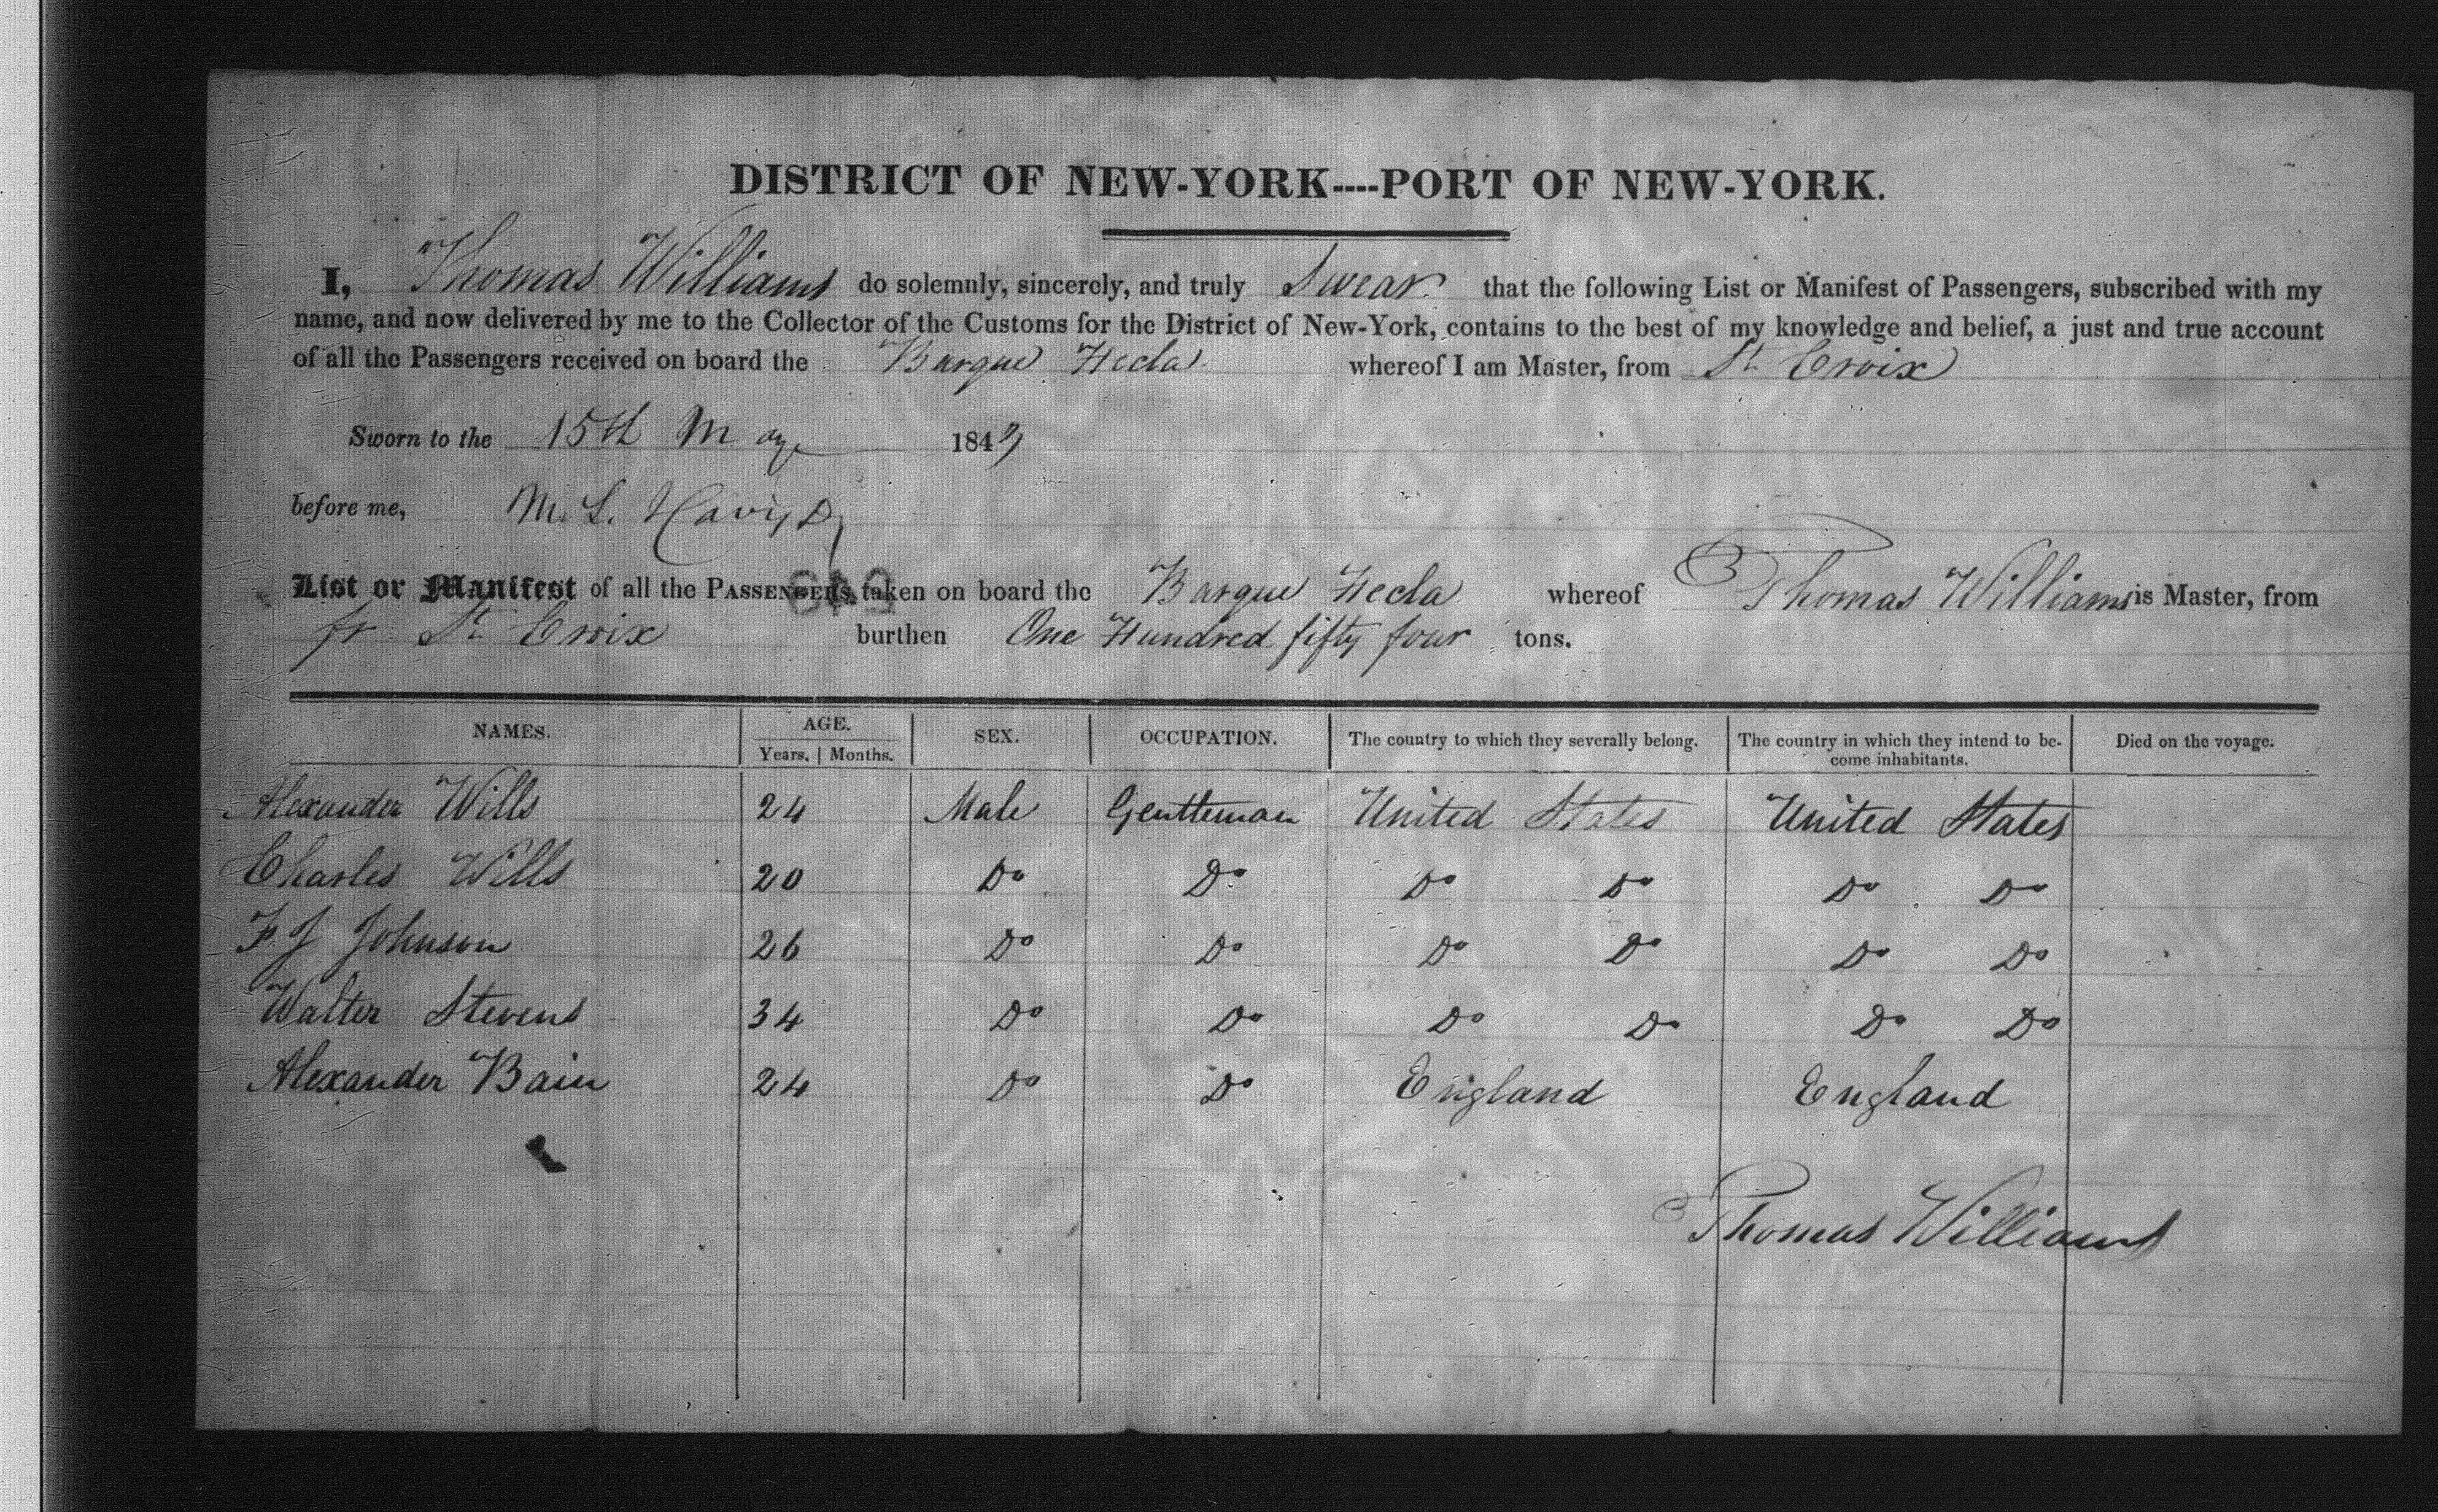 DISTRICT OF NEW-YORK----PORT OF NEW-YORK.
I, Thomas Williams do solemnly, sincerely, and truly Swear that the following List or Manifest of Passengers, subscribed with my
name, and now delivered by me to the Collector of the Customs for the District of New-York, contains to the best of my knowledge and belief, a just and true account
of all the Passengers received on board the Barque Hecla whereof I am Master, from St Croix
Sworn to the 15th May 184
before me, M. L.
List or Manifest of all the PASSENGERS, taken on board the Barque Hecla whereof Thomas Williams is Master, from
fr St Croix burthen One Hundred fifty four tons.
NAMES. AGE. SEX. OCCUPATION. The country to which they severally belong. The country in which they intend to be- Died on the voyage.
Years. | Months. come inhabitants.
Alexander Wills 24 Male Gentleman United States United States
Charles Wills 20 Do Do Do Do Do Do
F J Johnson 26 Do Do Do Do Do Do
Walter Stevens 34 Do Do Do Do Do Do
Alexander Bain 24 Do Do England England
Thomas Williams